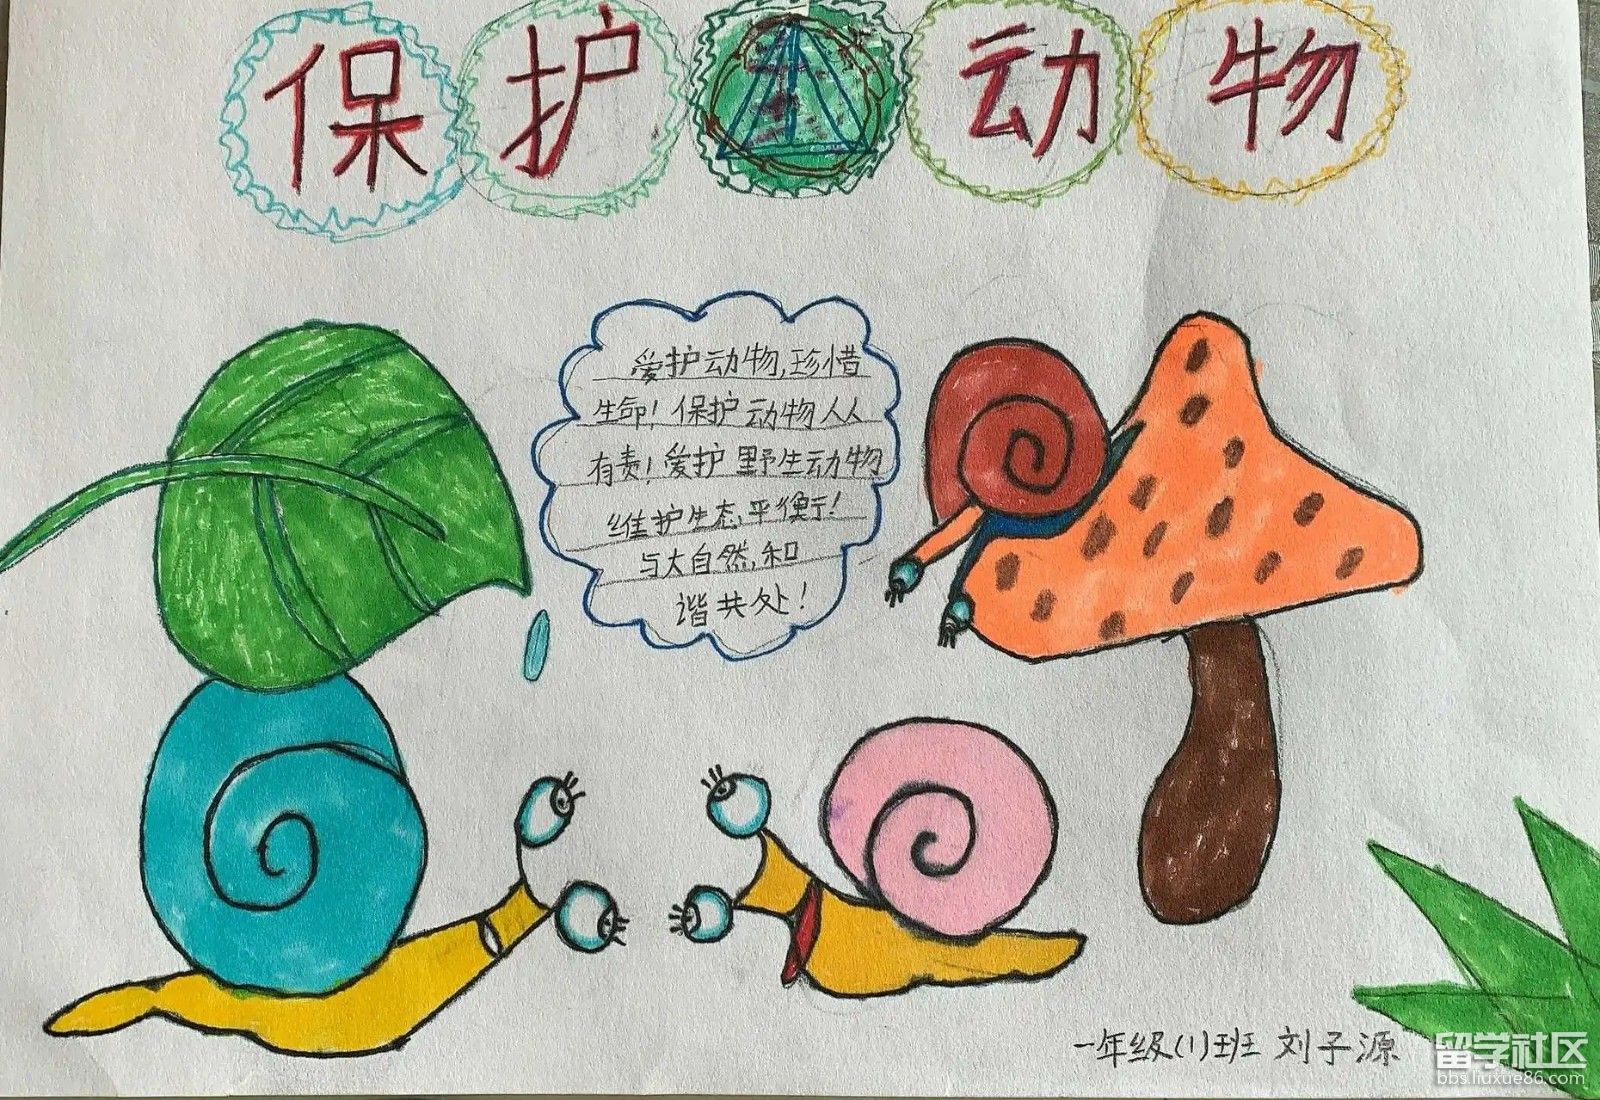 保护动物
爱护动物,珍惜
生命!保护动物人人
有责!爱护野生动物
维护生态,平衡!
与大自然,和
谐共处!
一年级(1)班 刘子源
留学社区
bbs.liuxue86.com